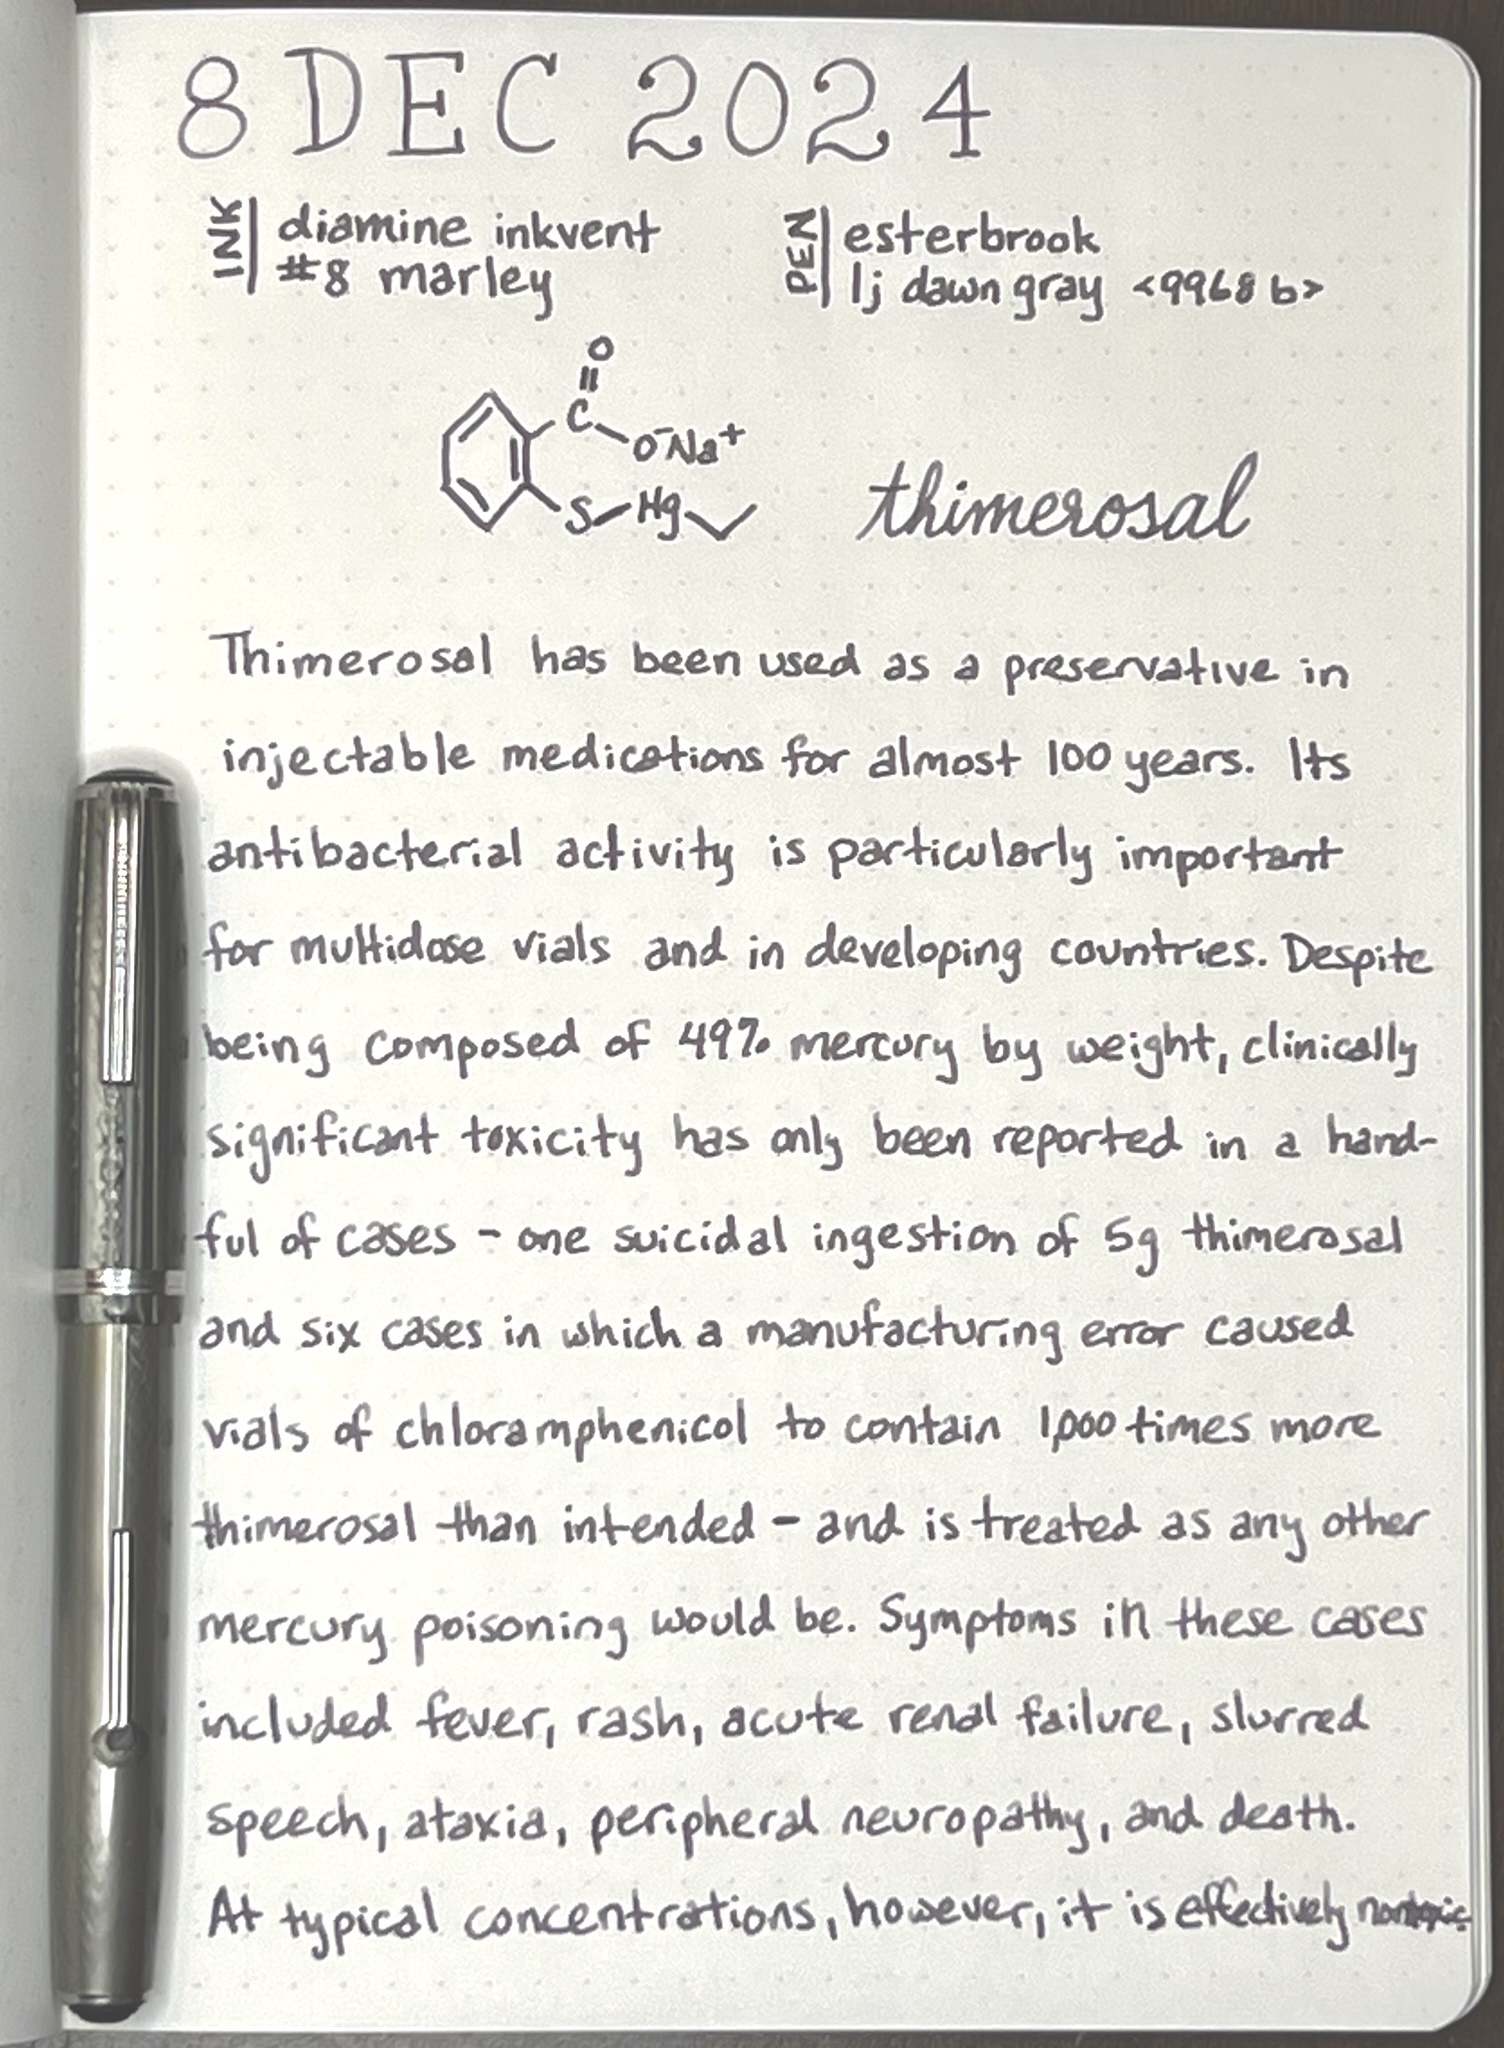 8 DEC 2024
INK
diamine inkvent
#8 marley
PEN
esterbrook
lj dawn gray <9968 b>
O
C
O⁻Na⁺
S Hg
thimerosal
Thimerosal has been used as a preservative in
injectable medications for almost 100 years. Its
antibacterial activity is particularly important
for multidose vials and in developing countries. Despite
being composed of 49% mercury by weight, clinically
significant toxicity has only been reported in a hand-
ful of cases - one suicidal ingestion of 5g thimerosal
and six cases in which a manufacturing error caused
vials of chloramphenicol to contain 1,000 times more
thimerosal than intended - and is treated as any other
mercury poisoning would be. Symptoms in these cases
included fever, rash, acute renal failure, slurred
speech, ataxia, peripheral neuropathy, and death.
At typical concentrations, however, it is effectively nontoxic.